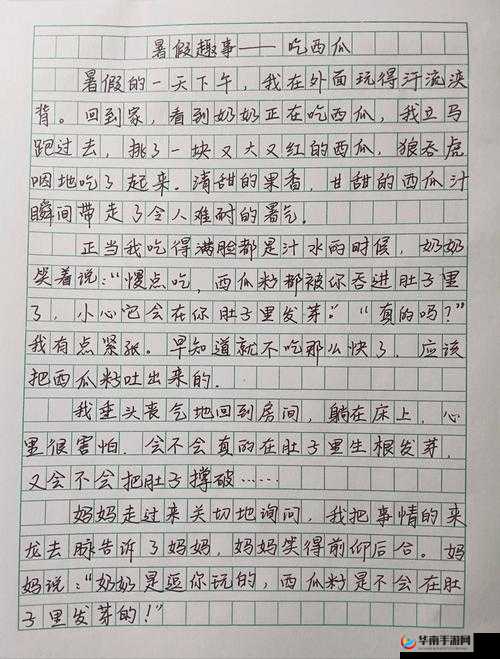 暑假趣事——吃西瓜
暑假的一天下午，我在外面玩得汗流浃
背。回到家，看到奶奶正在吃西瓜，我立马
跑过去，挑了一块又大又红的西瓜，狼吞虎
咽地吃了起来。清甜的果香，甘甜的西瓜汁
瞬间带走了令人难耐的暑气。
正当我吃得满脸都是汁水而时候，奶奶
笑着说：“慢点吃，西瓜籽都被你吞进肚子里
了，小心它会在你肚子里发芽。”“真的吗？”
我有点紧张。早知道就不吃那么快了，应该
把西瓜籽吐出来的．
我垂头丧气地回到房间，躺在床上，心
里很害怕．会不会真的在肚子里生根发芽，
又会不会把肚子撑破……
妈妈走过来关切地询问，我把事情的来
龙去脉告诉了妈妈，妈妈笑得前仰后合。妈
妈说：“奶奶是逗你玩的，西瓜籽是不会在肚
子里发芽的！”
华南手游网